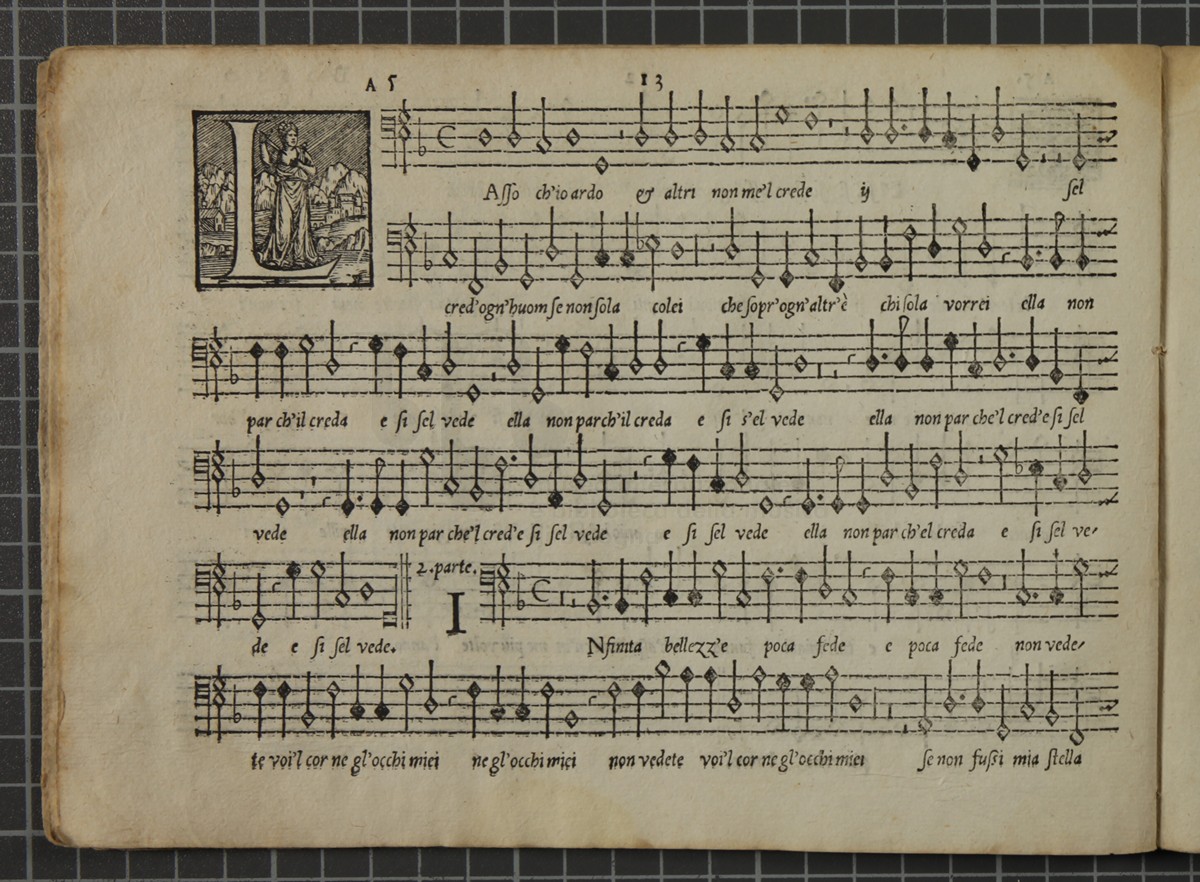 A 5 13
L
Asso ch'io ardo & altri non me'l crede ij sel
cred'ogn'huom se non sola colei che sopr'ogn'altr'è chi sola vorrei ella non
par ch'il creda e si sel vede ella non par ch'il creda e si s'el vede ella non par che'l cred'e si sel
vede ella non par che'l cred'e si sel vede e si sel vede ella non par ch'el creda e si sel ve-
2. parte.
de e si sel vede. I Nfinita bellezz'e poca fede e poca fede non vede-
te voi'l cor ne gl'occhi miei ne gl'occhi miei non vedete voi'l cor ne gl'occhi miei se non fussi mia stella